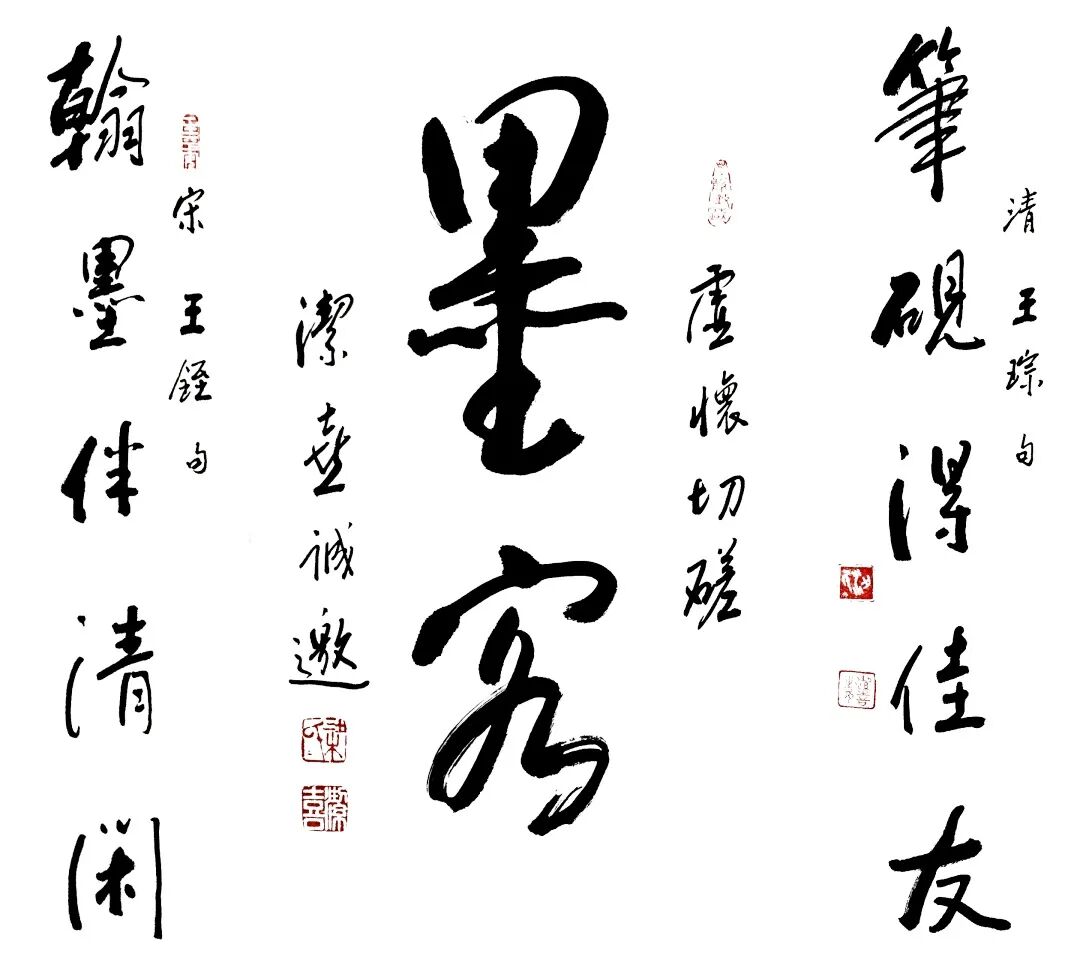 清王琮句
筆硯得佳友
虛懷切磋
墨客
潔喜誠邀
宋王銍句
翰墨伴清閑